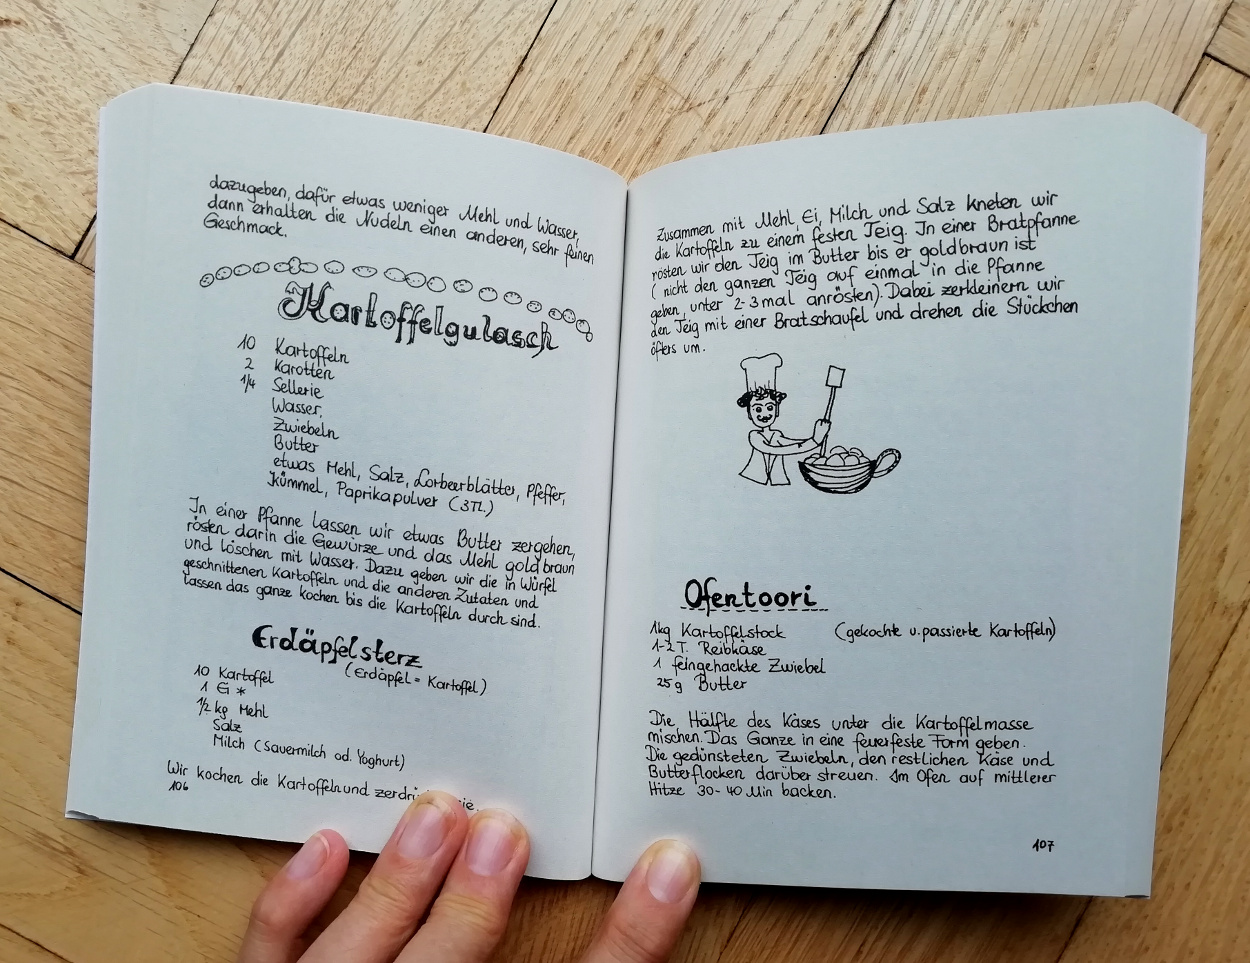 dazugeben, dafür etwas weniger Mehl und Wasser,
dann erhalten die Nudeln einen anderen, sehr feinen
Geschmack.
Kartoffelgulasch
10 Kartoffeln
2 Karotten
1/4 Sellerie
Wasser,
Zwiebeln
Butter
etwas Mehl, Salz, Lorbeerblätter, Pfeffer,
Kümmel, Paprikapulver (3TL.)
In einer Pfanne lassen wir etwas Butter zergehen,
rösten darin die Gewürze und das Mehl goldbraun
und löschen mit Wasser. Dazu geben wir die in Würfel
geschnittenen Kartoffeln und die anderen Zutaten und
lassen das ganze kochen bis die Kartoffeln durch sind.
Erdäpfelsterz
(Erdäpfel = Kartoffel)
10 Kartoffel
1 Ei *
1/2 kg Mehl
Salz
Milch (Sauermilch od. Yoghurt)
Wir kochen die Kartoffeln und
106
Zusammen mit Mehl, Ei, Milch und Salz kneten wir
die Kartoffeln zu einem festen Teig. In einer Bratpfanne
rösten wir den Teig im Butter bis er goldbraun ist
(nicht den ganzen Teig auf einmal in die Pfanne
geben, unter 2-3 mal anrösten). Dabei zerkleinern wir
den Teig mit einer Bratschaufel und drehen die Stückchen
öfters um.
Ofentoori
1kg Kartoffelstock (gekochte u. passierte Kartoffeln)
1-2 T. Reibkäse
1 feingehackte Zwiebel
25g Butter
Die Hälfte des Käses unter die Kartoffelmasse
mischen. Das Ganze in eine feuerfeste Form geben.
Die gedünsteten Zwiebeln, den restlichen Käse und
Butterflocken darüber streuen. Im Ofen auf mittlerer
Hitze 30-40 Min backen.
107